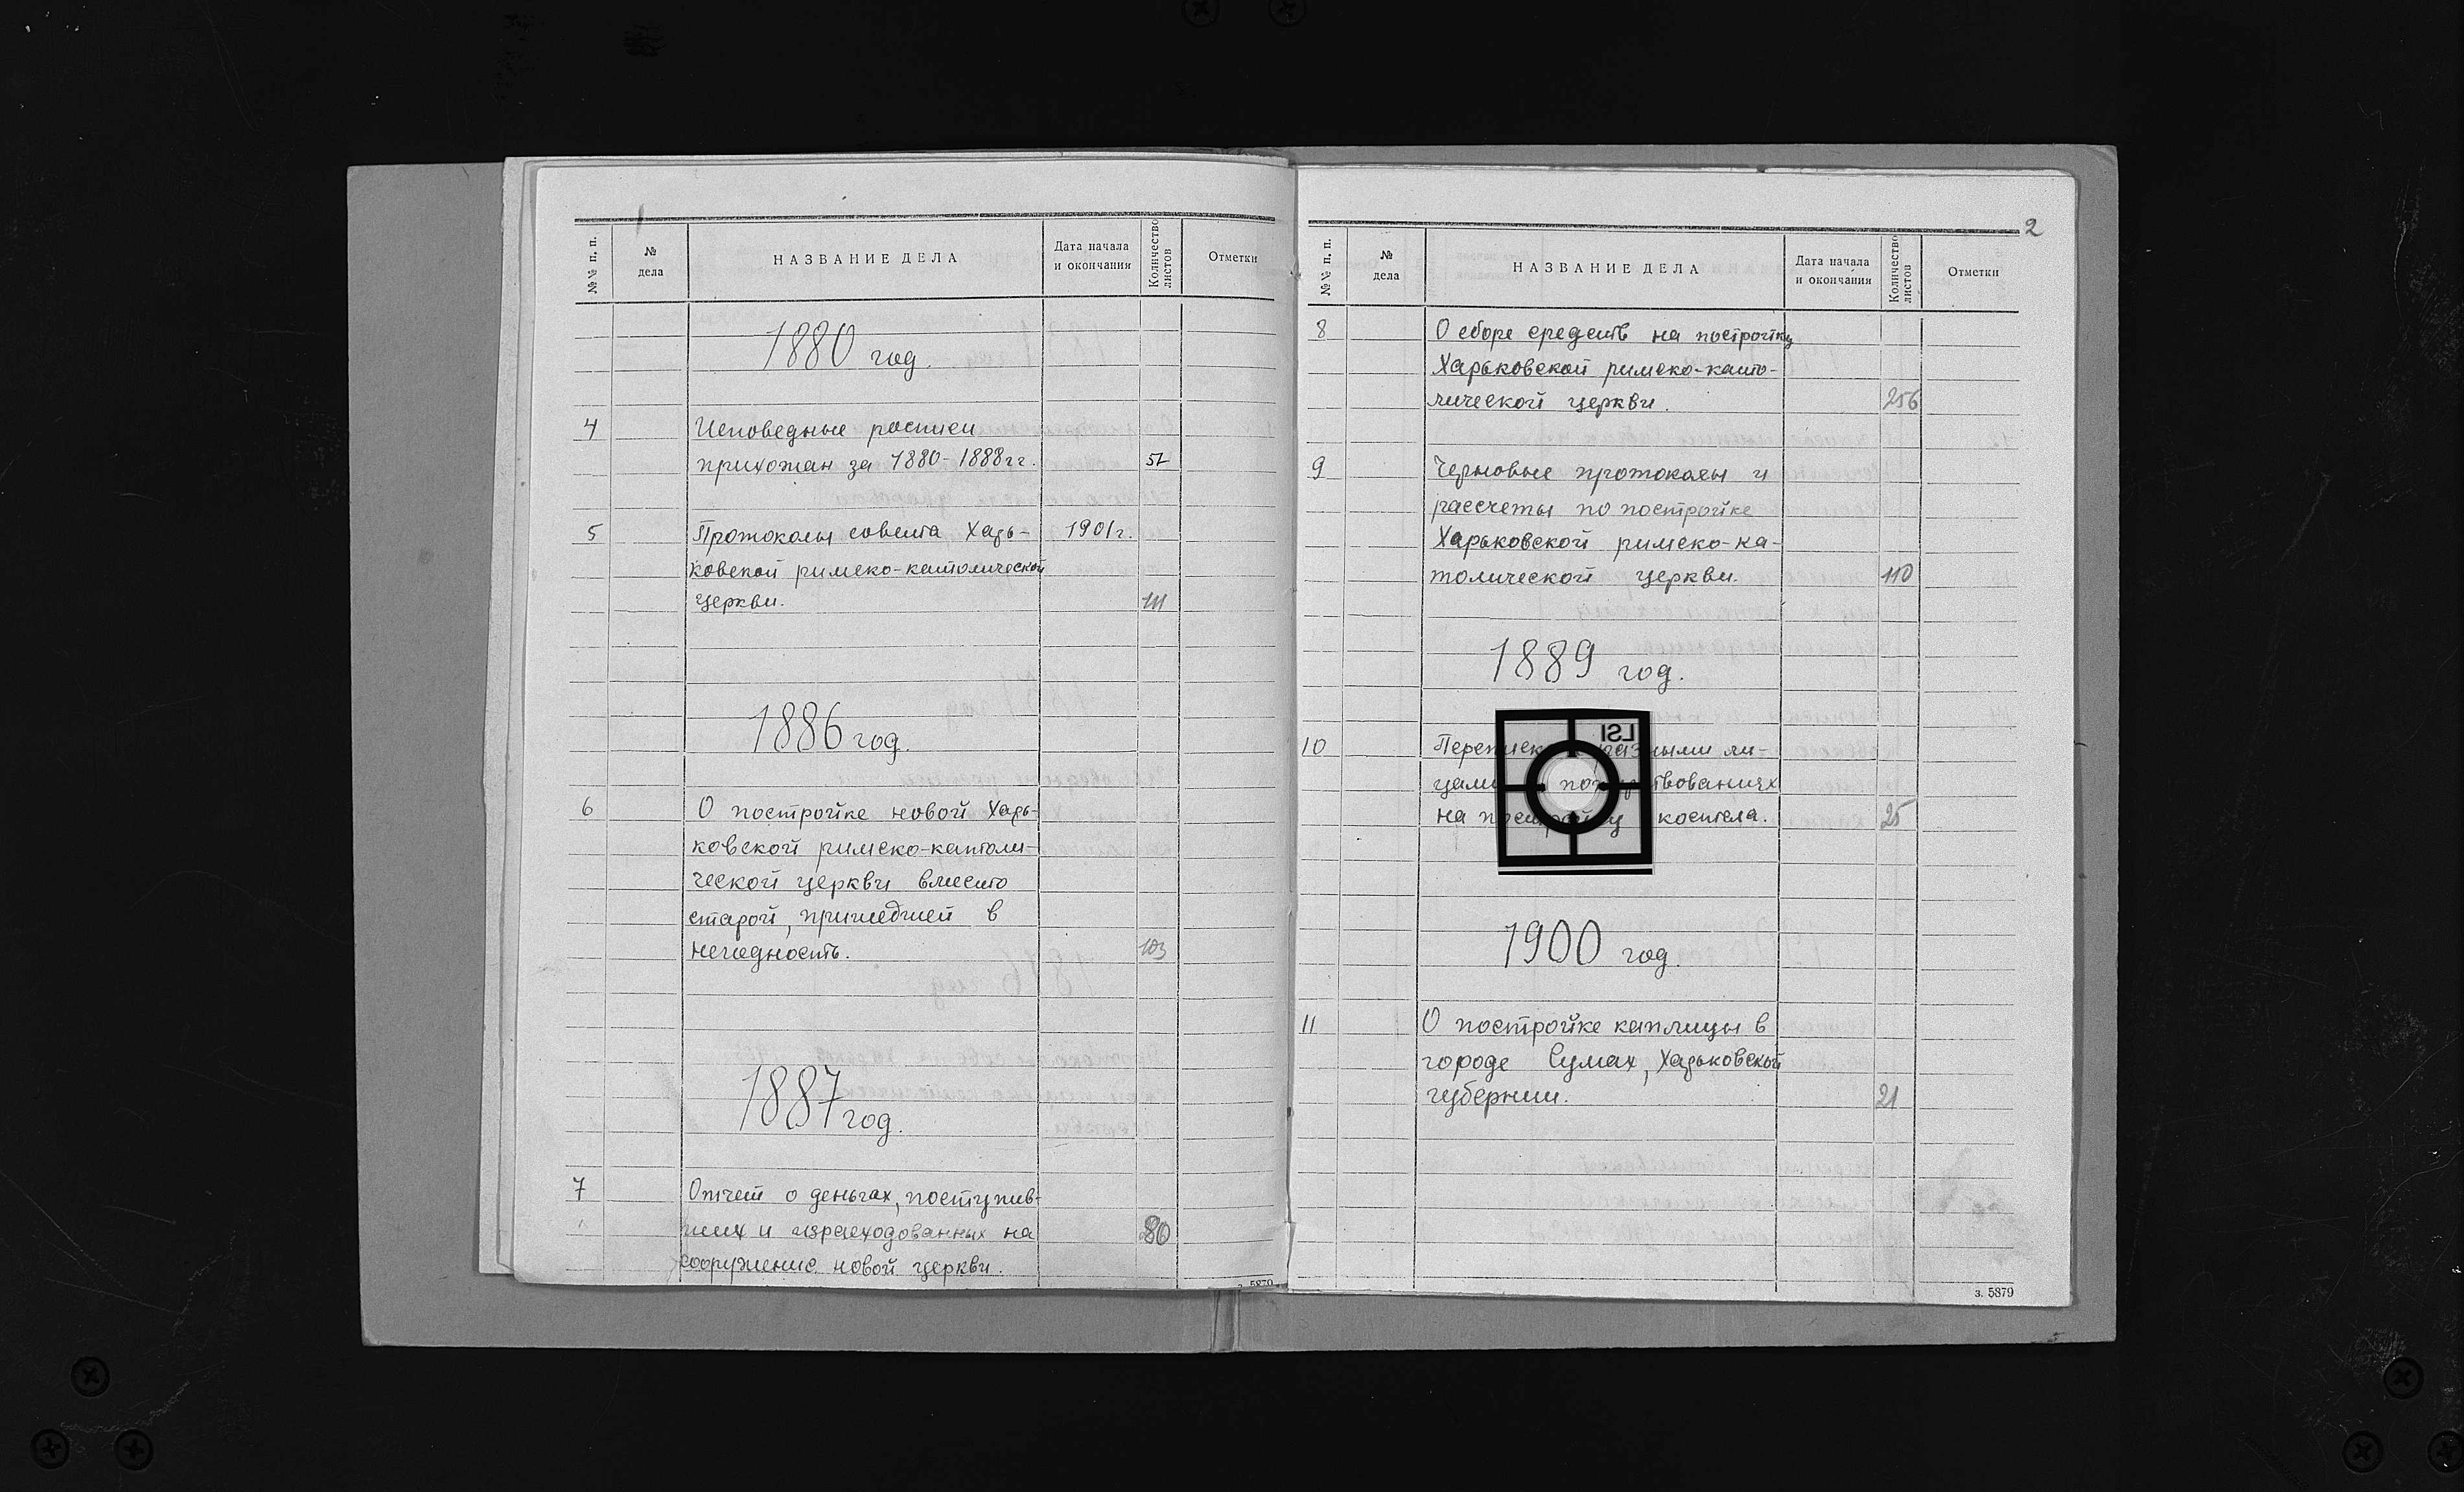 №№ п. п.
№ дела
НАЗВАНИЕ ДЕЛА
Дата начала и окончания
Количество листов
Отметки
1880 год.
4 Исповедные росписи
прихожан за 1880-1888 гг. 57
5 Протоколы совета Харь- 1901 г.
ковской римско-католической
церкви. 111
1886 год.
6 О постройке новой Харь-
ковской римско-католи-
ческой церкви вместо
старой, пришедшей в
негодность. 103
1887 год.
7 Отчет о деньгах, поступив-
ших и израсходованных на 80
сооружение новой церкви.
з. 5879
2
№№ п. п.
№ дела
НАЗВАНИЕ ДЕЛА
Дата начала и окончания
Количество листов
Отметки
8 О сборе средств на постройку
Харьковской римско-като-
лической церкви. 256
9 Черновые протоколы и
рассчеты по постройке
Харьковской римско-ка-
толической церкви. 110
1889 год.
LSI
10 Переписка разными ли-
цами пожертвованиях
на постройку костела. 25
1900 год.
11 О постройке каплицы в
городе Сумах, Харьковской
губернии. 21
з. 5879